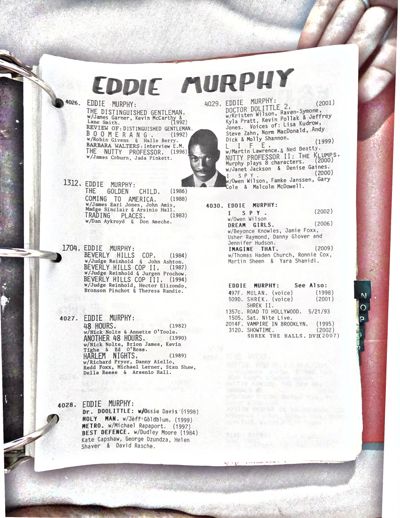 EDDIE MURPHY
4026. EDDIE MURPHY:
THE DISTINGUISHED GENTLEMAN.
w/James Garner, Kevin McCarthy &
Lane Smith. (1992)
REVIEW OF:DISTINGUISHED GENTLEMAN.
BOOMERANG. (1992)
w/Robin Givens & Halle Berry.
BARBARA WALTERS:interview E.M.
THE NUTTY PROFESSOR. (1996)
w/James Coburn, Jada Pinkett.
1312. EDDIE MURPHY:
THE GOLDEN CHILD. (1986)
COMING TO AMERICA. (1988)
w/James Earl Jones, John Amis,
Madge Sinclair & Arsenio Hall.
TRADING PLACES. (1983)
w/Dan Aykroyd & Don Ameche.
1704. EDDIE MURPHY:
BEVERLY HILLS COP. (1984)
w/Judge Reinhold & John Ashton.
BEVERLY HILLS COP II. (1987)
w/Judge Reinhold & Jurgen Prochow.
BEVERLY HILLS COP III. (1994)
w/Judge Reinhold, Hector Elizondo,
Bronson Pinchot & Theresa Randle.
4027. EDDIE MURPHY:
48 HOURS. (1982)
w/Nick Nolte & Annette O'Toole.
ANOTHER 48 HOURS. (1990)
w/Nick Nolte, Brion James, Kevin
Tighe & Ed O'Ross.
HARLEM NIGHTS. (1989)
w/Richard Pryor, Danny Aiello,
Redd Foxx, Michael Lerner, Stan Shaw,
Della Reese & Arsenio Hall.
4028. EDDIE MURPHY:
Dr. DOOLITTLE. w/Ossie Davis (1998)
HOLY MAN. w/Jeff Goldblum. (1998)
METRO. w/Michael Rapaport. (1997)
BEST DEFENCE. w/Dudley Moore (1984)
Kate Capshaw, George Dzundza, Helen
Shaver & David Rasche.
4029. EDDIE MURPHY:
DOCTOR DOLITTLE 2. (2001)
w/Kristen Wilson, Raven-Symone,
Kyla Pratt, Kevin Pollak & Jeffrey
Jones. Voices of: Lisa Kudrow,
Steve Zahn, Norm MacDonald, Andy
Dick & Molly Shannon.
LIFE. (1999)
w/Martin Lawrence & Ned Beatty.
NUTTY PROFESSOR II: THE KLUMPS.
Murphy plays 8 characters. (2000)
w/Janet Jackson & Denise Gaines.
I SPY
w/Owen Wilson, Famke Janssen, Gary
Cole & Malcolm McDowell.
4030. EDDIE MURPHY:
I SPY. (2002)
w/Owen Wilson
DREAM GIRLS. (2006)
w/Beyonce Knowles, Jamie Foxx,
Usher Raymond, Danny Glover and
Jennifer Hudson.
IMAGINE THAT. (2009)
w/Thomas Haden Church, Ronnie Cox,
Martin Sheen & Yara Shahidi.
EDDIE MURPHY: See Also:
497F. MULAN. (voice) (1998)
1090. SHREK. (voice) (2001)
SHREK II.
1357c. ROAD TO HOLLYWOOD. 5/21/93
1505. Sat. Nite Live.
2014F. VAMPIRE IN BROOKLYN. (1995)
3120. SHOWTIME. (2002)
SHREK THE HALLS. DVR(2007)